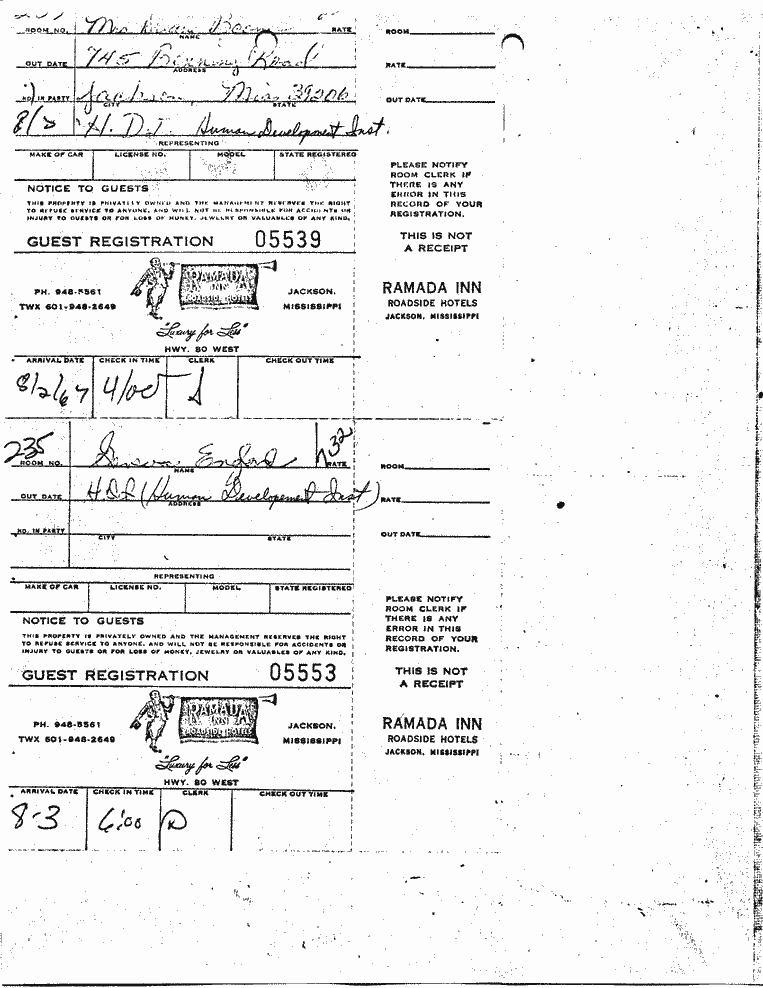 Mrs
ROOM NO. NAME RATE
745 Road
OUT DATE ADDRESS
Jackson, Miss 39206
NO. IN PARTY CITY STATE
H. D. I. Human Development Inst.
REPRESENTING
MAKE OF CAR LICENSE NO. MODEL STATE REGISTERED
NOTICE TO GUESTS
THIS PROPERTY IS PRIVATELY OWNED AND THE MANAGEMENT RESERVES THE RIGHT
TO REFUSE SERVICE TO ANYONE, AND WILL NOT BE RESPONSIBLE FOR ACCIDENTS OR
INJURY TO GUESTS OR FOR LOSS OF MONEY, JEWELRY OR VALUABLES OF ANY KIND.
GUEST REGISTRATION 05539
RAMADA
INN
ROADSIDE HOTELS
PH. 948-5561 JACKSON,
TWX 601-948-2649 MISSISSIPPI
"Luxury for Less"
HWY. 80 WEST
ARRIVAL DATE CHECK IN TIME CLERK CHECK OUT TIME
8/2/67 4/00
ROOM
RATE
OUT DATE
PLEASE NOTIFY
ROOM CLERK IF
THERE IS ANY
ERROR IN THIS
RECORD OF YOUR
REGISTRATION.
THIS IS NOT
A RECEIPT
RAMADA INN
ROADSIDE HOTELS
JACKSON, MISSISSIPPI
235 732
ROOM NO. NAME RATE
(Human Developement Inst)
OUT DATE ADDRESS
NO. IN PARTY CITY STATE
REPRESENTING
MAKE OF CAR LICENSE NO. MODEL STATE REGISTERED
NOTICE TO GUESTS
THIS PROPERTY IS PRIVATELY OWNED AND THE MANAGEMENT RESERVES THE RIGHT
TO REFUSE SERVICE TO ANYONE, AND WILL NOT BE RESPONSIBLE FOR ACCIDENTS OR
INJURY TO GUESTS OR FOR LOSS OF MONEY, JEWELRY OR VALUABLES OF ANY KIND.
GUEST REGISTRATION 05553
RAMADA
INN
ROADSIDE HOTELS
PH. 948-5561 JACKSON,
TWX 601-948-2649 MISSISSIPPI
"Luxury for Less"
HWY. 80 WEST
ARRIVAL DATE CHECK IN TIME CLERK CHECK OUT TIME
8-3 6:00 D
ROOM
RATE
OUT DATE
PLEASE NOTIFY
ROOM CLERK IF
THERE IS ANY
ERROR IN THIS
RECORD OF YOUR
REGISTRATION.
THIS IS NOT
A RECEIPT
RAMADA INN
ROADSIDE HOTELS
JACKSON, MISSISSIPPI